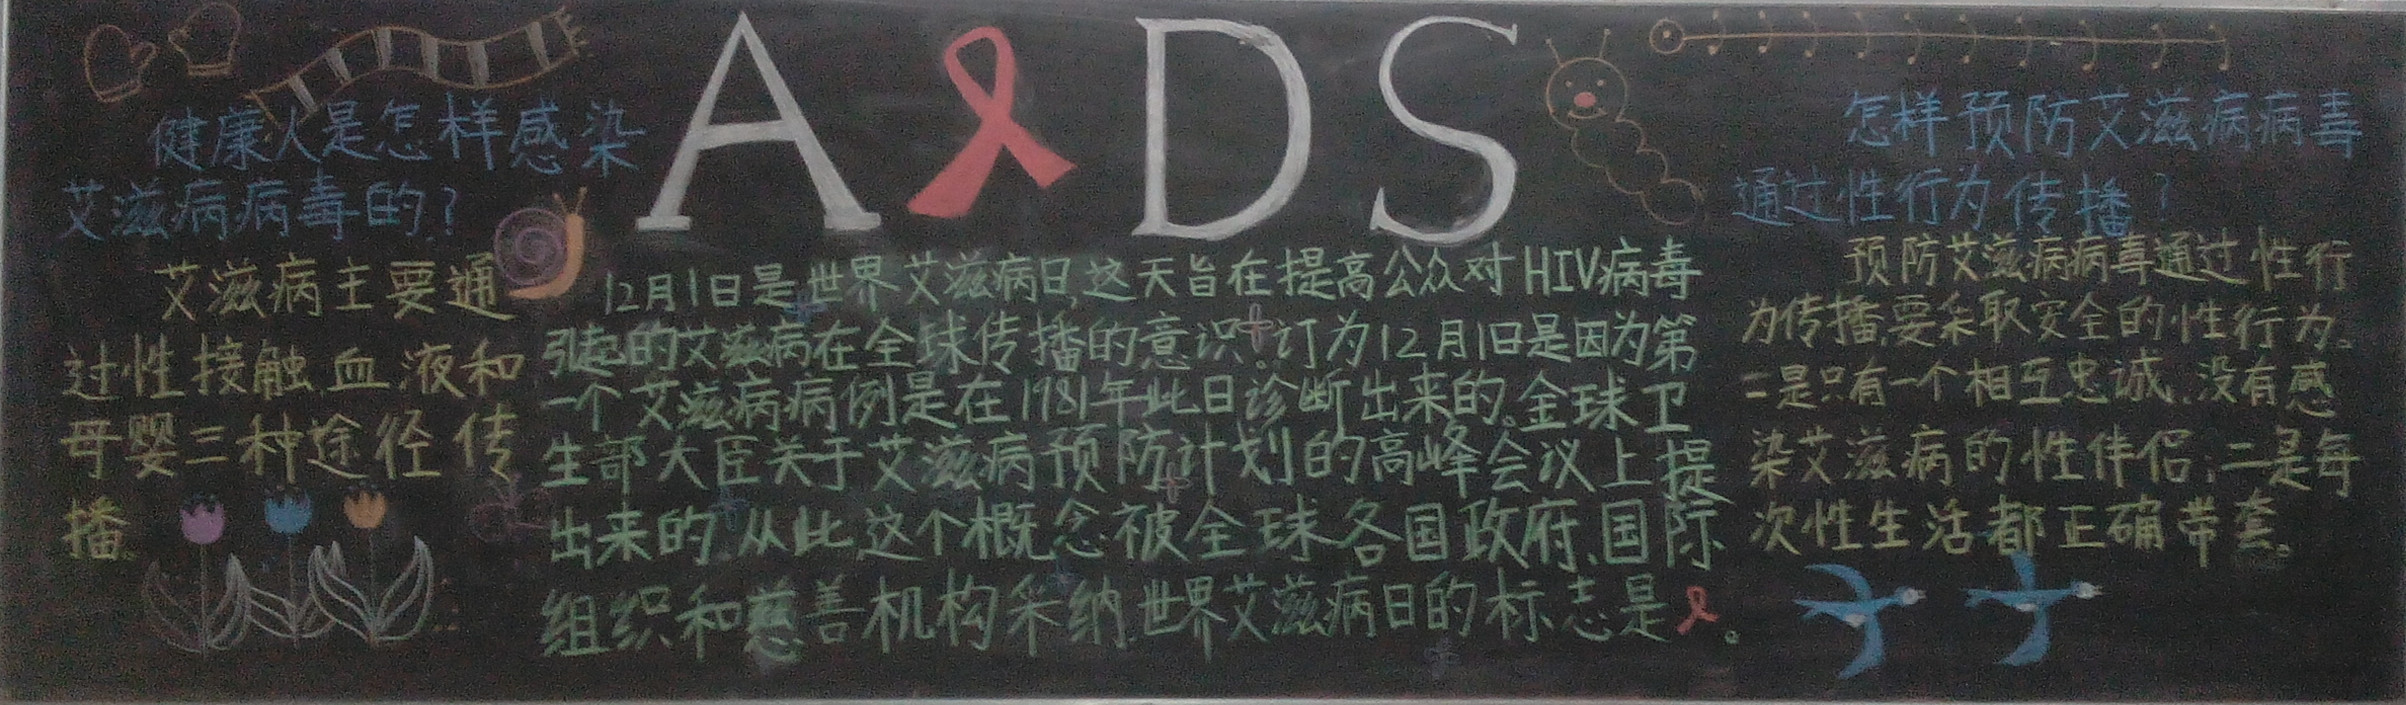 A DS
健康人是怎样感染
艾滋病病毒的?
艾滋病主要通
过性接触、血液和
母婴三种途径传
播
12月1日是世界艾滋病日,这天旨在提高公众对HIV病毒
引起的艾滋病在全球传播的意识。订为12月1日是因为第
一个艾滋病病例是在1981年此日诊断出来的。全球卫
生部大臣关于艾滋病预防计划的高峰会议上提
出来的 从此这个概念被全球各国政府、国际
组织和慈善机构采纳。世界艾滋病日的标志是 。
怎样预防艾滋病病毒
通过性行为传播?
预防艾滋病病毒通过性行
为传播,要采取安全的性行为。
一是只有一个相互忠诚、没有感
染艾滋病的性伴侣;二是每
次性生活都正确带套。